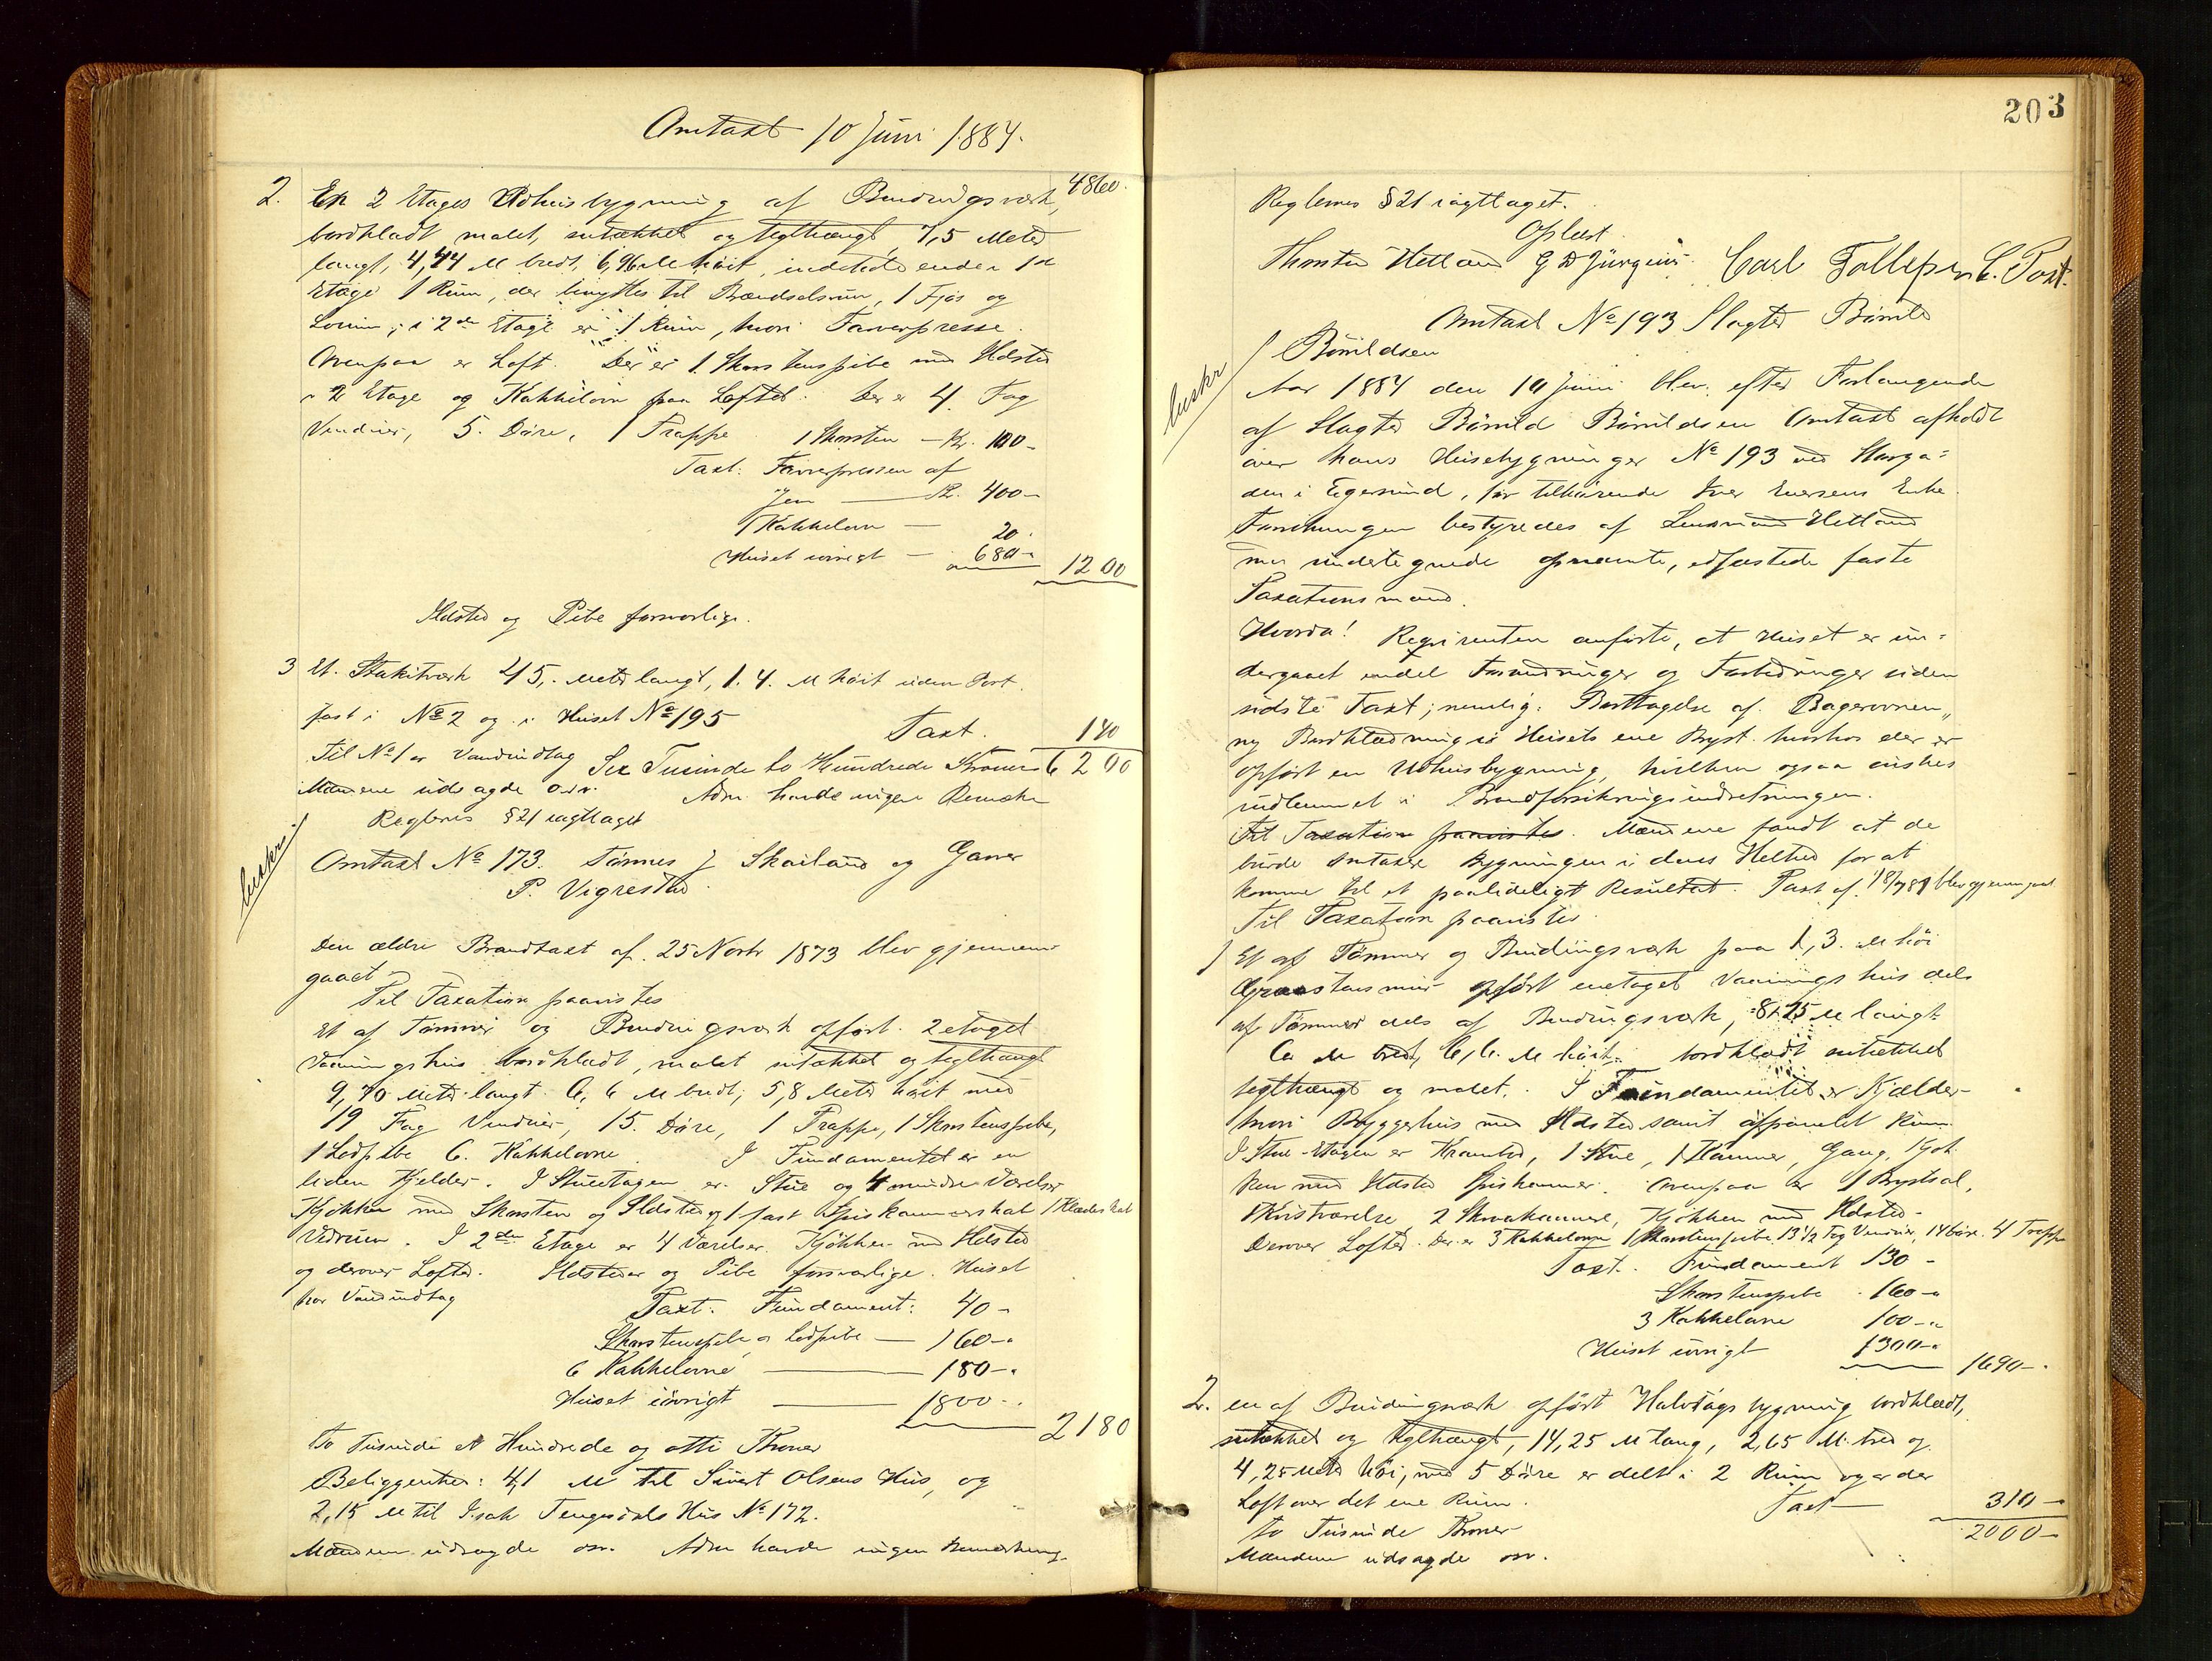 Omtaxt 10 Juni 1884.
2. En 2 Etages Udhusbygning af Bindingsværk, 4860.
bordklædt malet, sutækket og teglhængt, 7,5 Meter
langt, 4,44 M bredt, 6,96 M høit, indeholdende i 1ste
Etage 1 Rum, der benyttes til Brændselsrum, 1 Fjøs og
; i 2den Etage er 1 Rum, hvori Farverpresse.
Ovenpaa er Loft. Der er 1 Skorstenspibe med Ildsted
i 2 Etage og Kakkelovn paa Loftet. Der er 4 Fag
Vinduer, 5 Døre, 1 Trappe 1 Skorsten — Kr. 100 -
Taxt: Farverpressen af
Jern — Kr. 400 -
1 Kakkelovn — 20 -
Huset iøvrigt — 680 - 1200
Ildsted og Pibe forsvarlige.
3 Et Stakitværk 45,- Meter langt, 1.4. M høit uden Port
fast i No 2 og i Huset No 195 Taxt. 140
Til No 1 er Vandindtag Sex Tusinde to Hundrede Kroner 6200
Mændene udsagde osv. Adm. havde ingen Bemærkn
Reglernes § 21 iagttaget
Omtaxt No 173. Tønnes J Skailand og Ganer
P. Vigrestad.
Den ældre Brandtaxt af 25 Novbr 1873 blev gjennem-
gaaet
Til Taxation paavistes
Et af Tømmer og Bindingsværk opført 2etaget
Vaaningshus bordklædt, malet sutækket og teglhængt
9,70 Meter langt 6,6 M bredt, 5,8 Meter høit med
19 Fag Vinduer, 15. Døre, 1 Trappe, 1 Skorstenspibe,
1 Ledpibe 6. Kakkelovne. I Fundamentet er en
liden Kjelder. I Stueetagen er Stue og 4 mindre Værelser
Kjøkken med Skorsten og Ildsted og 1 fast Spiskammerskab 1 Klædeskab
Vedrum. I 2den Etage er 4 Værelser. Kjøkken med Ildsted
og derover Loftet. Ildsteder og Pibe forsvarlige. Huset
har Vandindtag Taxt. Fundament: 40 -
Skorstenspibe og Ledpibe — 160 -
6 Kakkelovne — 180 -
Huset iøvrigt — 1800 -
2180
to Tusinde et Hundrede og otti Kroner
Beliggenhed: 4,1 M til Sivert Olsens Hus, og
2,15 M til Isak Tengesdals Hus No 172.
Mændene udsagde osv. Adm havde ingen Bemærkning.
203
Reglernes § 21 iagttaget.
Oplæst.
Thorsten Hetland G D Jürgens Carl Tollefsen C. Post.
Omtaxt No 193 Slagter Børild
Børildsen
Aar 1884 den 10 Juni blev efter Forlangende
af Slagter Børild Børildsen Omtaxt afholdt
over hans Husebygninger No 193 ved Storga=
den i Egersund, før tilhørende Iver Iversens Enke
Forretningen bestyredes af Lensmand Hetland
med undertegnede opnævnte, edfæstede faste
Taxationsmænd.
Hvorda! Requirenten anførte, at Huset er un=
dergaaet endel Forandringer og Forbedringer siden
sidste Taxt; nemlig: Borttagelse af Bagerovnen,
ny Bordklædning i Husets ene Bryst hvorhos der er
opført en Udhusbygning, hvilken ogsaa ønskes
indlemmet i Brandforsikringsindretningen.
Til Taxation paavistes. Mændene fandt at de
burde omtaxere Bygningen i dens Helhed for at
komme til et paalideligt Resultat. Taxt af blev gjennemgaaet
Til Taxation paavistes
1 Et af Tømmer og Bindingsværk paa 1,3. M høi
Graastensmur opført enetaget Vaaningshus dels
af Tømmer dels af Bindingsværk, 8,25 M langt
6 M bredt, 6,6. M høit. bordklædt sutækket
teglhængt og malet. I Fundamentet er Kjælder
hvori Bryggerhus med Ildsted samt afpanelet Rum
I Stue Etagen er Krambod, 1 Stue, 1 Kammer, Gang, Kjøk
ken med Ildsted Spiskammer. Ovenpaa er 1 Brystsal,
1 Kvistværelse, 2 Skraakammere, Kjøkken med Ildsted
Derover Loftet. Der er 3 Kakkelovne 1 Skorstenspibe 13 1/2 Fag Vinduer, 14 Døre. 4 Trapper
Taxt. Fundament 130 -
Skorstenspibe 160 -
3 Kakkelovne 100 -
Huset iøvrigt 1300 -
1690 -
2. en af Bindingsværk opført Halvtagsbygning bordklædt,
sutækket og teglhængt, 14,25 M lang, 2,65 M. bred og
4,25 Meter høi, med 5 Døre er delt i 2 Rum og er der
Loft over det ene Rum. Taxt — 310 -
to Tusinde Kroner 2000 -
Mændene udsagde osv.